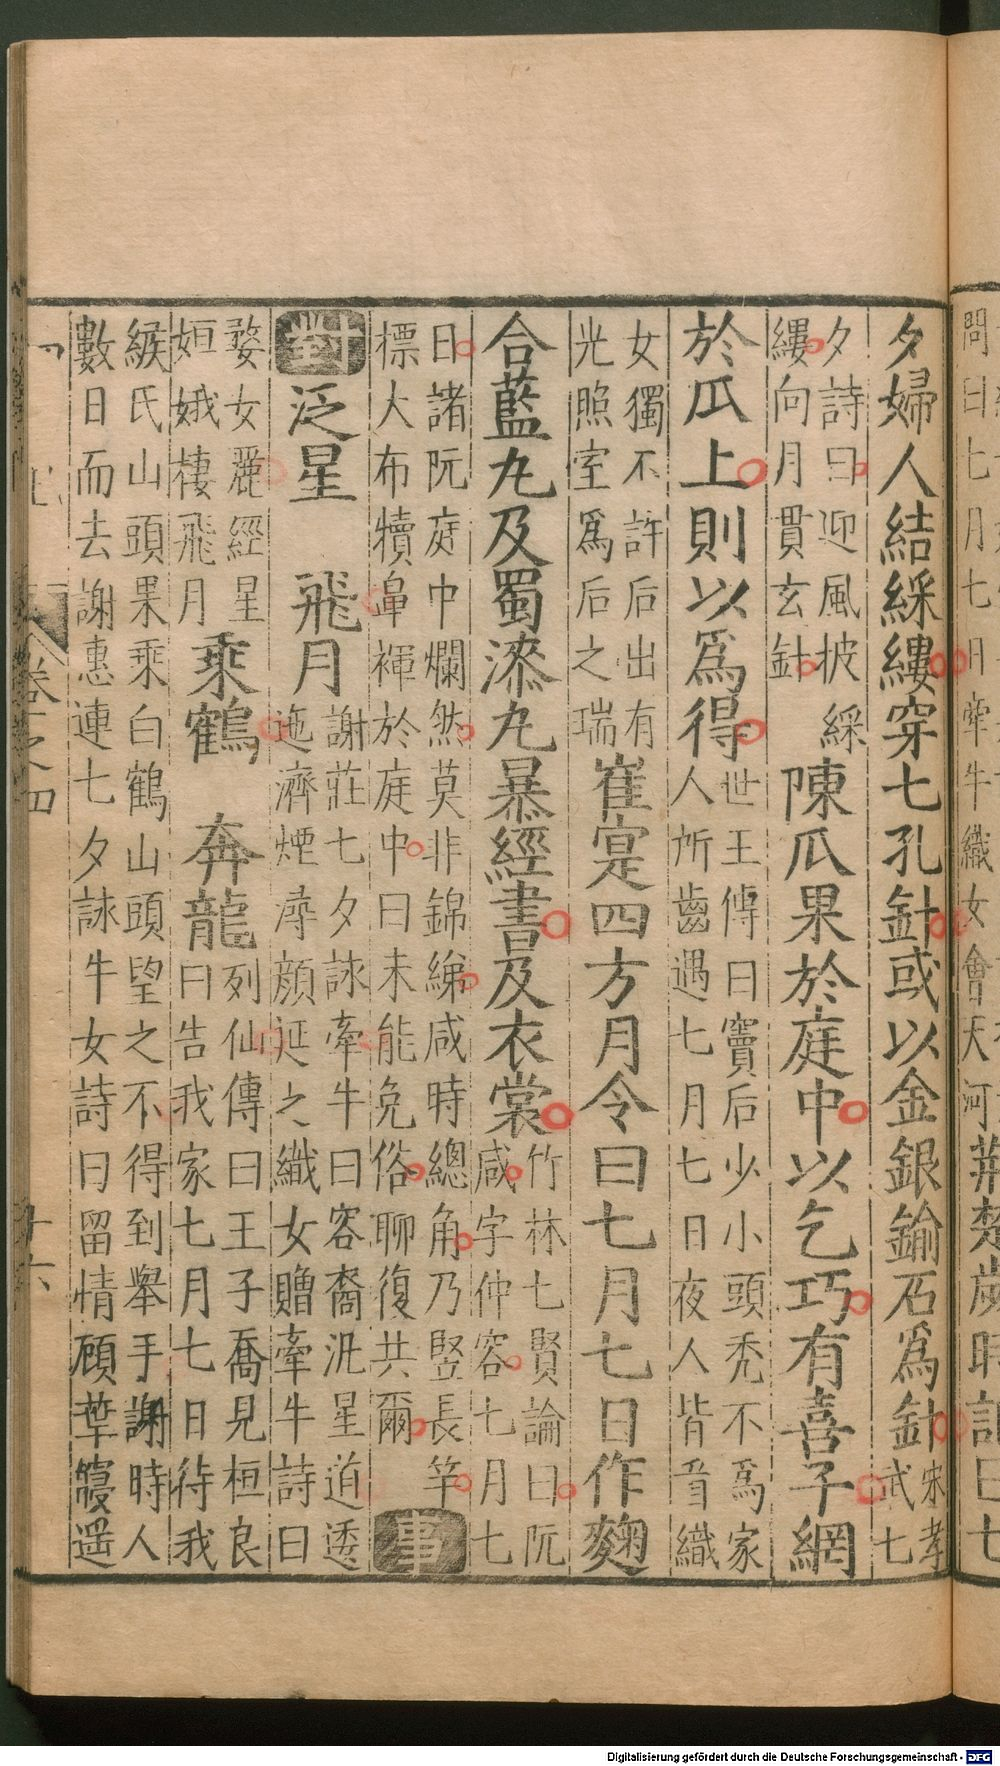 問曰七月七日牽牛織女會天河荊楚歲時記曰七
夕婦人結綵縷穿七孔針或以金銀鍮石爲針宋孝武七
夕詩曰迎風披綵縷向月貫玄針陳瓜果於庭中以乞巧有喜子網
於瓜上則以爲得世王傳曰竇后少小頭禿不爲家人所齒遇七月七日夜人皆看織
女獨不許后出有光照室爲后之瑞崔寔四方月令曰七月七日作麴
合藍丸及蜀漆丸暴經書及衣裳竹林七賢論曰阮咸字仲容七月七
日諸阮庭中爛然莫非錦綈咸時總角乃豎長竿標大布犢鼻褌於庭中曰未能免俗聊復共爾事
對泛星 飛月謝莊七夕詠牽牛曰容裔泛星道逶迤濟煙潯顏延之織女贈牽牛詩曰
婺女麗經星姮娥棲飛月乘鶴 奔龍列仙傳曰王子喬見桓良曰告我家七月七日待我
緱氏山頭果乘白鶴山頭望之不得到舉手謝時人數日而去謝惠連七夕詠牛女詩曰留情顧華寢遥
卷之四 十六
Digitalisierung gefördert durch die Deutsche Forschungsgemeinschaft - DFG